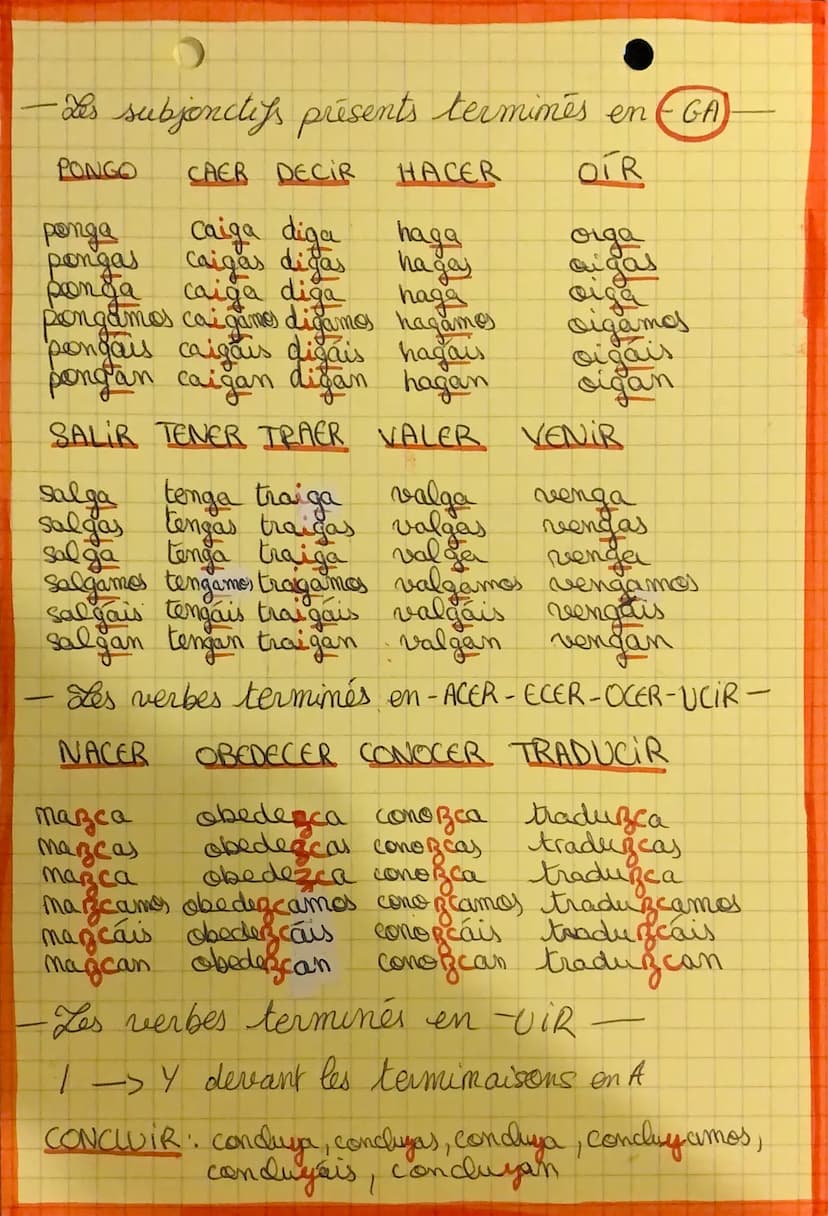 — Les subjonctifs présents terminés en -GA —
PONGO CAER DECIR HACER OÍR
ponga caiga diga haga oiga
pongas caigas digas hagas oigas
ponga caiga diga haga oiga
pongamos caigamos digamos hagamos oigamos
pongáis caigáis digáis hagáis oigáis
pongan caigan digan hagan oigan
SALIR TENER TRAER VALER VENIR
salga tenga traiga valga venga
salgas tengas traigas valgas vengas
salga tenga traiga valga venga
salgamos tengamos traigamos valgamos vengamos
salgáis tengáis traigáis valgáis vengáis
salgan tengan traigan valgan vengan
— Les verbes terminés en -ACER - ECER - OCER - UCIR —
NACER OBEDECER CONOCER TRADUCIR
nazca obedezca conozca traduzca
nazcas obedezcas conozcas traduzcas
nazca obedezca conozca traduzca
nazcamos obedezcamos conozcamos traduzcamos
nazcáis obedezcáis conozcáis traduzcáis
nazcan obedezcan conozcan traduzcan
— Les verbes terminés en -UIR —
I —> Y devant les terminaisons en A
CONCLUIR : concluya, concluyas, concluya, concluyamos,
concluyáis, concluyan